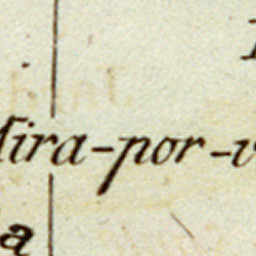 ira-por-v
a